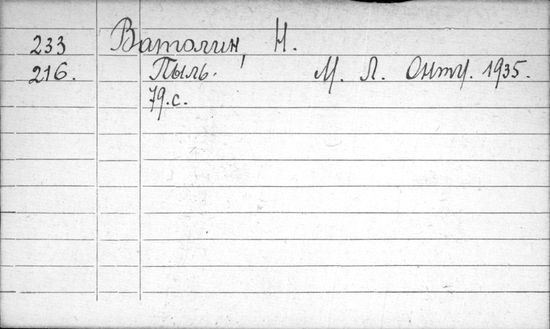 233 Ватолин, Н.
216. Пыль. М. Л. Онти. 1935.
79.с.